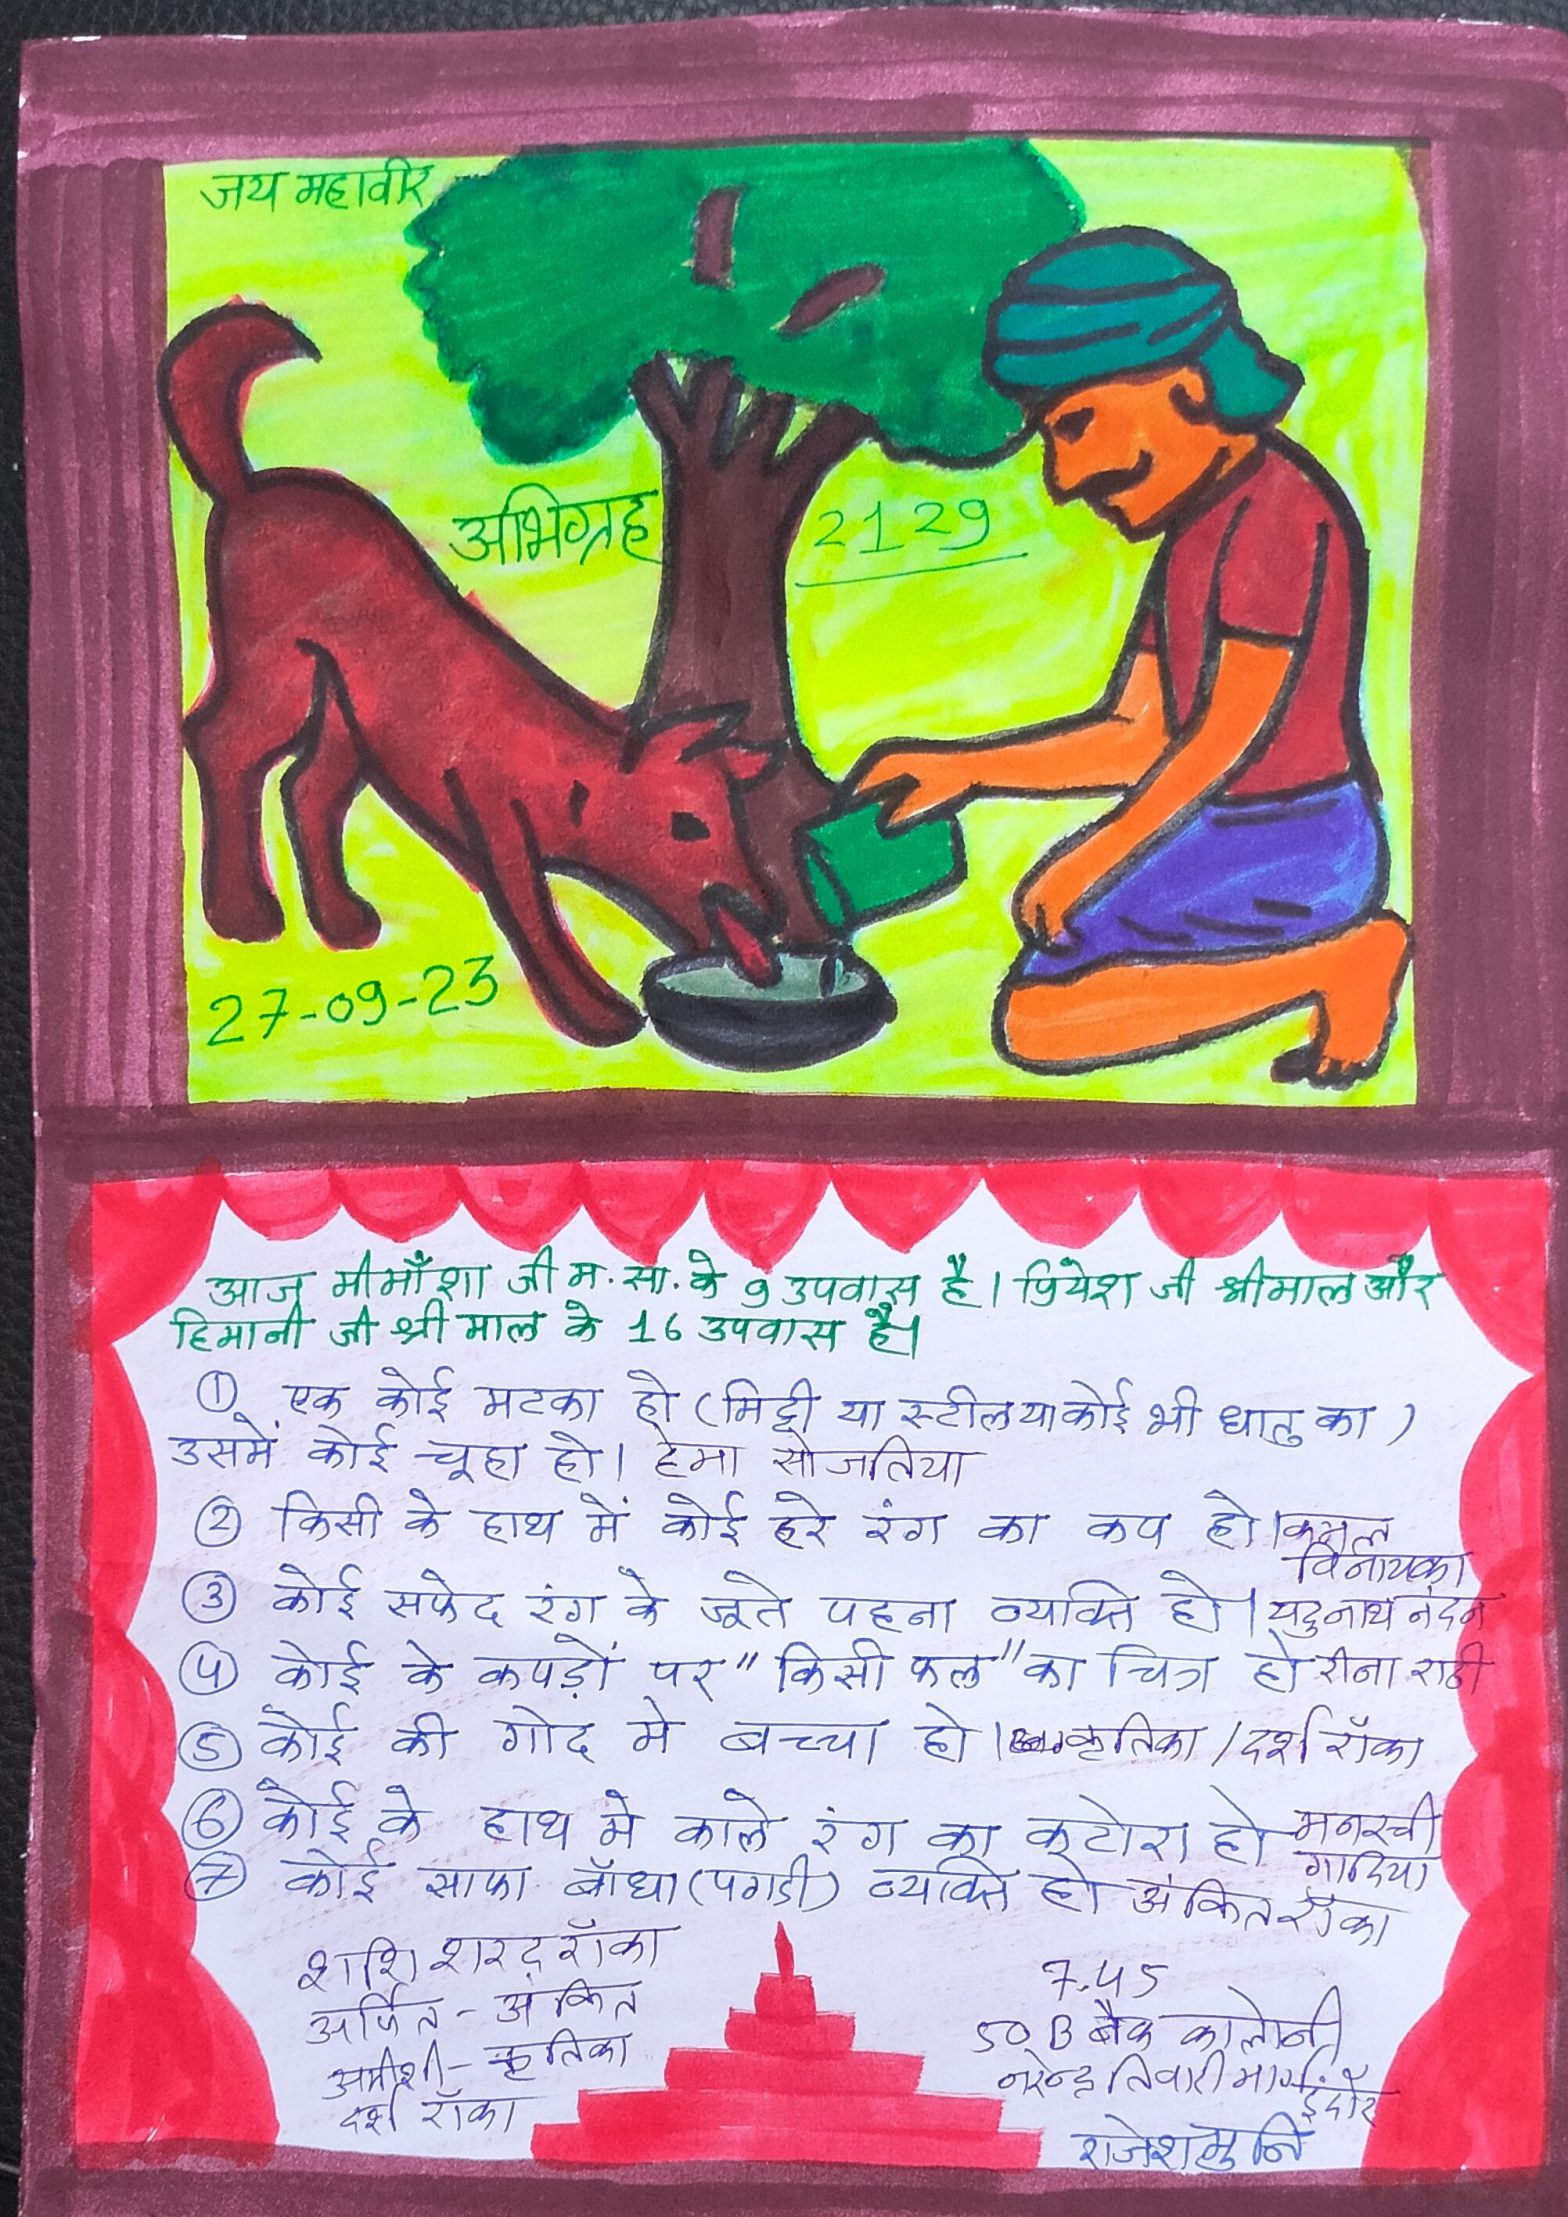 जय महावीर
अभिग्रह 2129
27-09-23
आज मीमाँशा जी म. सा. के 9 उपवास है। प्रियेश जी श्रीमाल और
हिमानी जी श्री माल के 16 उपवास है।
① एक कोई मटका हो (मिट्टी या स्टील या कोई भी धातु का)
उसमें कोई चूहा हो। हेमा सोजतिया
② किसी के हाथ में कोई हरे रंग का कप हो। कमल
विनायका
③ कोई सफेद रंग के जूते पहना व्यक्ति हो। यदुनाथ नंदन
④ कोई के कपड़ों पर "किसी फल" का चित्र हो रीना राठी
⑤ कोई की गोद मे बच्चा हो। कृतिका / दर्श राँका
⑥ कोई के हाथ मे काले रंग का कटोरा हो मनस्वी
गादिया
⑦ कोई साफा बाँधा (पगडी) व्यक्ति हो अंकित राँका
शशि शरद राँका
अर्पित - अंकित
अमीशी - कृतिका
दर्श राँका
7.45
50 B बैंक कालोनी
नरेन्द्र तिवारी मार्ग इंदौर
राजेश मुनि